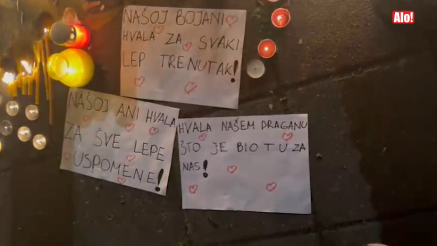 NAŠOJ BOJANI
HVALA ZA SVAKI
LEP TRENUTAK!
NAŠOJ ANI HVALA
ZA SVE LEPE
USPOMENE!
HVALA NAŠEM DRAGANU
ŠTO JE BIO TU ZA
NAS!
Alo!